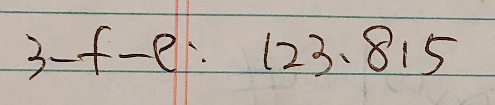 3-f-e: 123.815